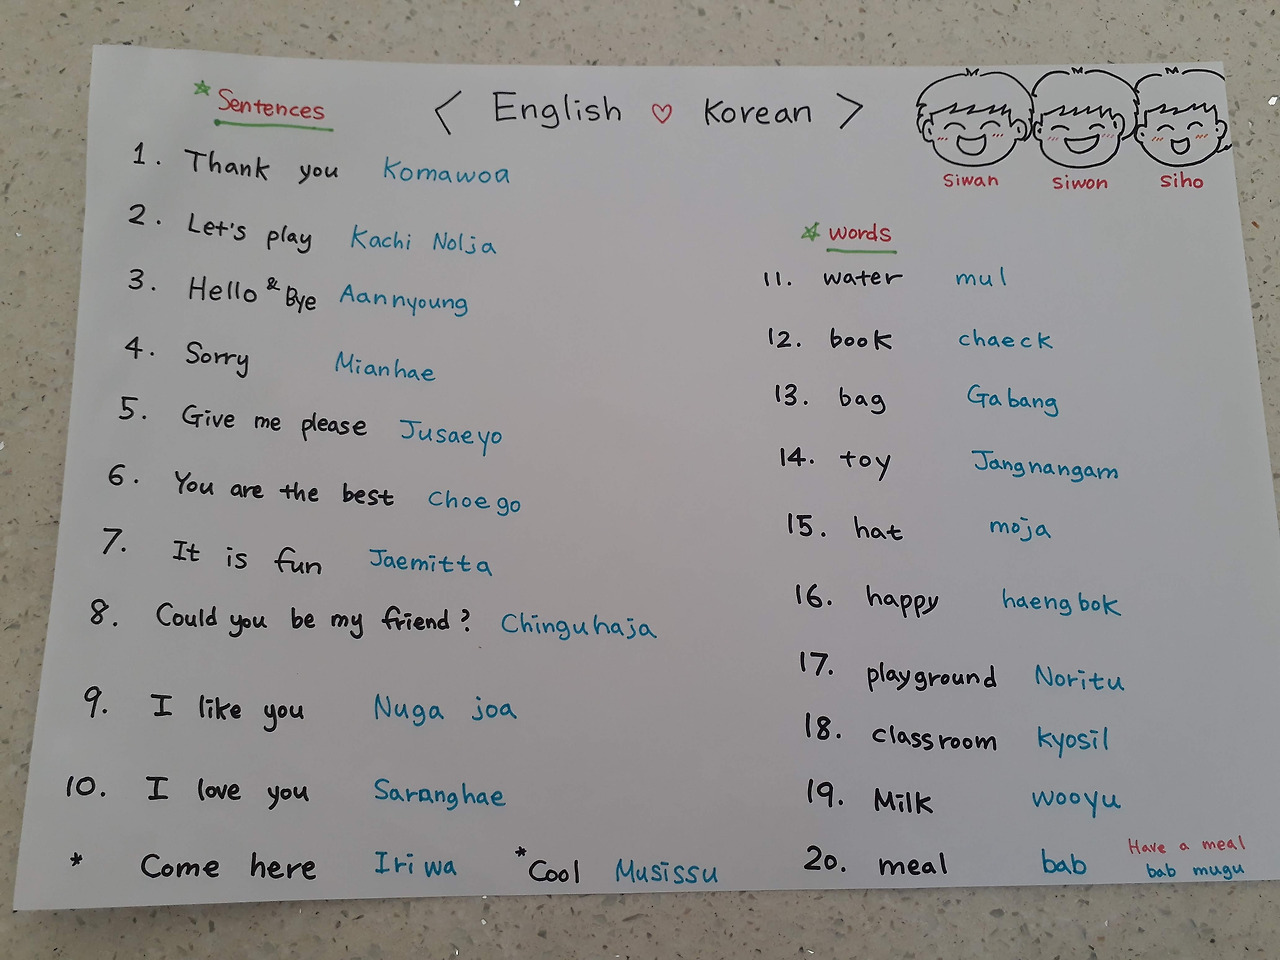 < English ♡ Korean >
siwan siwon siho
☆ Sentences
1. Thank you Komawoa
2. Let's play Kachi Nolja
3. Hello & Bye Aannyoung
4. Sorry Mianhae
5. Give me please Jusaeyo
6. You are the best choego
7. It is fun Jaemitta
8. Could you be my friend? Chinguhaja
9. I like you Nuga joa
10. I love you Saranghae
* Come here Iriwa
* Cool Musissu
☆ words
11. water mul
12. book chaeck
13. bag Gabang
14. toy Jangnangam
15. hat moja
16. happy haengbok
17. playground Noritu
18. classroom kyosil
19. Milk wooyu
20. meal bab
Have a meal
bab mugu